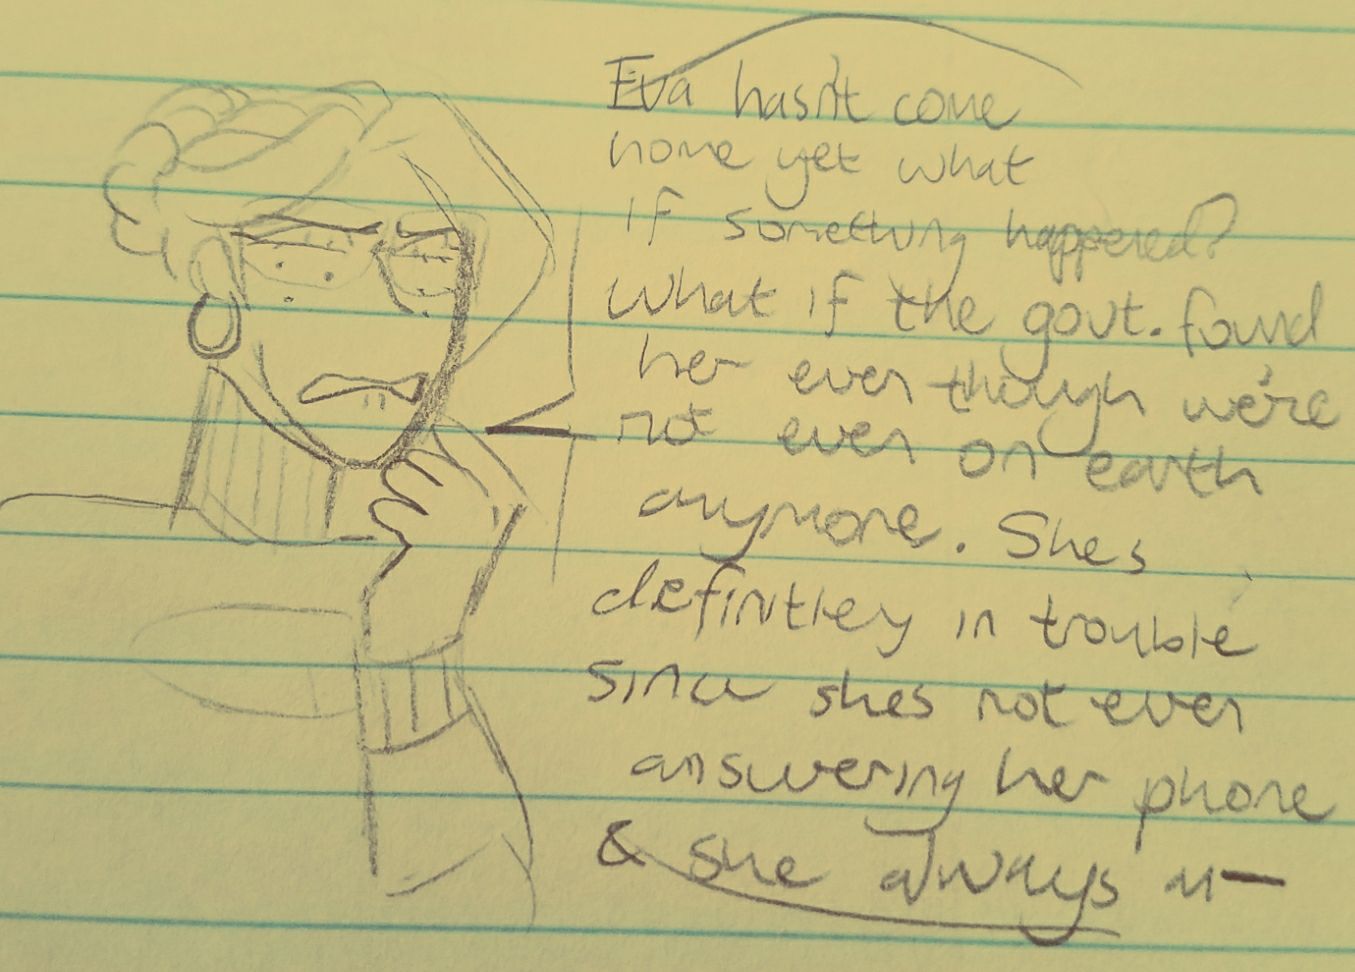 Eva hasn't come
home yet what
if something happened?
What if the govt. found
her even though we're
not even on earth
anymore. Shes
definitley in trouble
since shes not even
answering her phone
& she always a—